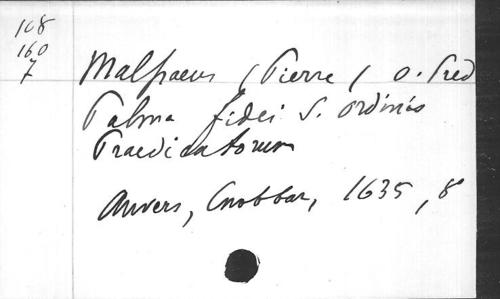 168
160
7
Malpaeus (Pierre) o. Pred
Palma fidei S. ordinis
Praedicatorum
Anvers, Cnobbar, 1635, 8°